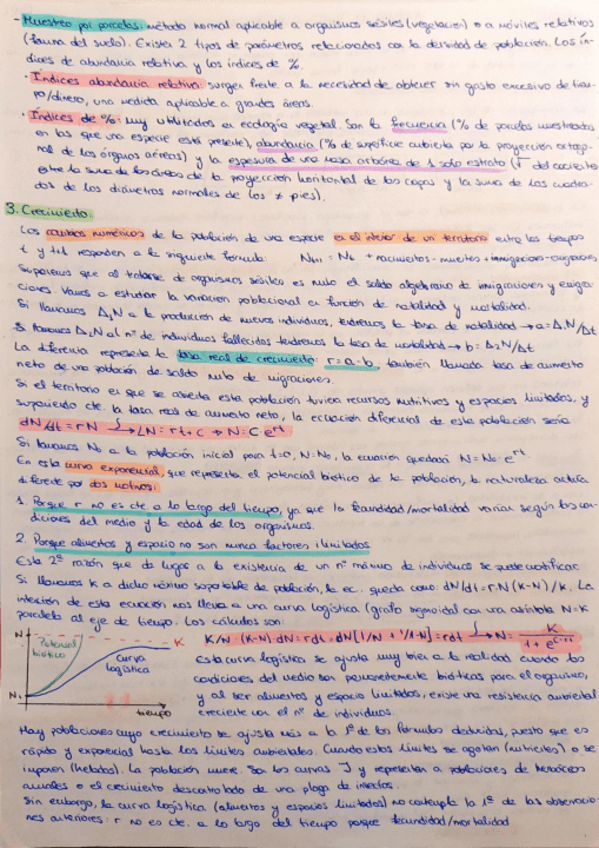 - Muestreo por parcelas: método normal aplicable a organismos sésiles (vegetación) o a móviles relativos
(fauna del suelo). Existen 2 tipos de parámetros relacionados con la densidad de población. Los ín-
dices de abundancia relativa y los índices de %.
· Índices abundancia relativa: surgen frente a la necesidad de obtener sin gasto excesivo de tiem-
po/dinero, una medida aplicable a grandes áreas.
· Índices de %: muy utilizados en ecología vegetal. Son la frecuencia (% de parcelas muestreadas
en las que una especie está presente), abundancia (% de superficie cubierta por la proyección ortogo-
nal de los órganos aéreos) y la espesura de una masa arbórea de 1 solo estrato (√ del cociente
entre la suma de las áreas de la proyección horizontal de las copas y la suma de los cuadra-
dos de los diámetros normales de los ≠ pies).
3. Crecimiento:
Los cambios numéricos de la población de una especie en el interior de un territorio entre los tiempos
t y t+1 responden a la siguiente fórmula: Nt+1 = Nt + nacimientos - muertes + inmigraciones - emigraciones
Suponemos que al tratarse de organismos sésiles es nulo el saldo algebraico de inmigraciones y emigra-
ciones. Vamos a estudiar la variación poblacional en función de natalidad y mortalidad.
Si llamamos Δ₁N a la producción de nuevos individuos, tendremos la tasa de natalidad → a = Δ₁N/Δt
Si llamamos Δ₂N al nº de individuos fallecidos tendremos la tasa de mortalidad → b = Δ₂N/Δt
La diferencia representa la tasa real de crecimiento: r = a - b, también llamada tasa de aumento
neto de una población de saldo nulo de migraciones.
Si el territorio en que se asienta esta población tuviera recursos nutritivos y espacios ilimitados, y
suponiendo cte. la tasa real de aumento neto, la ecuación diferencial de esta población sería
dN/dt = rN ∫→ LN = rt + C → N = C·e^rt
Si llamamos N₀ a la población inicial para t=0, N=N₀, la ecuación quedará N = N₀·e^rt
En esta curva exponencial, que representa el potencial biótico de la población, la naturaleza actúa
diferente por dos motivos:
1. Porque r no es cte a lo largo del tiempo, ya que la fecundidad/mortalidad varían según las con-
diciones del medio y la edad de los organismos.
2. Porque alimentos y espacio no son nunca factores ilimitados
Esta 2ª razón que da lugar a la existencia de un nº máximo de individuos se puede cuantificar.
Si llamamos K a dicho máximo soportable de población, la ec. queda como: dN/dt = r·N (K-N)/K. La
integración de esta ecuación nos lleva a una curva logística (grafo sigmoidal con una asíntota N=K
paralela al eje de tiempo. Los cálculos son:
K/N·(K-N)·dN = rdt = dN[1/N + 1/K-N] = rdt ∫→ N = K / 1 + e^(C-rt)
N
Potencial
biótico
K
Curva
logística
N₀
tiempo
Esta curva logística se ajusta muy bien a la realidad cuando las
condiciones del medio son permanentemente bióticas para el organismo,
y al ser alimentos y espacio limitados, existe una resistencia ambiental
creciente con el nº de individuos.
Hay poblaciones cuyo crecimiento se ajusta más a la 1ª de las fórmulas deducidas, puesto que es
rápido y exponencial hasta los límites ambientales. Cuando estos límites se agotan (nutrientes) o se
imponen (heladas). La población muere. Son las curvas J y representan a poblaciones de herbáceas
anuales o el crecimiento descontrolado de una plaga de insectos.
Sin embargo, la curva logística (alimentos y espacios limitados) no contempla la 1ª de las observacio-
nes anteriores: r no es cte. a lo largo del tiempo porque fecundidad/mortalidad